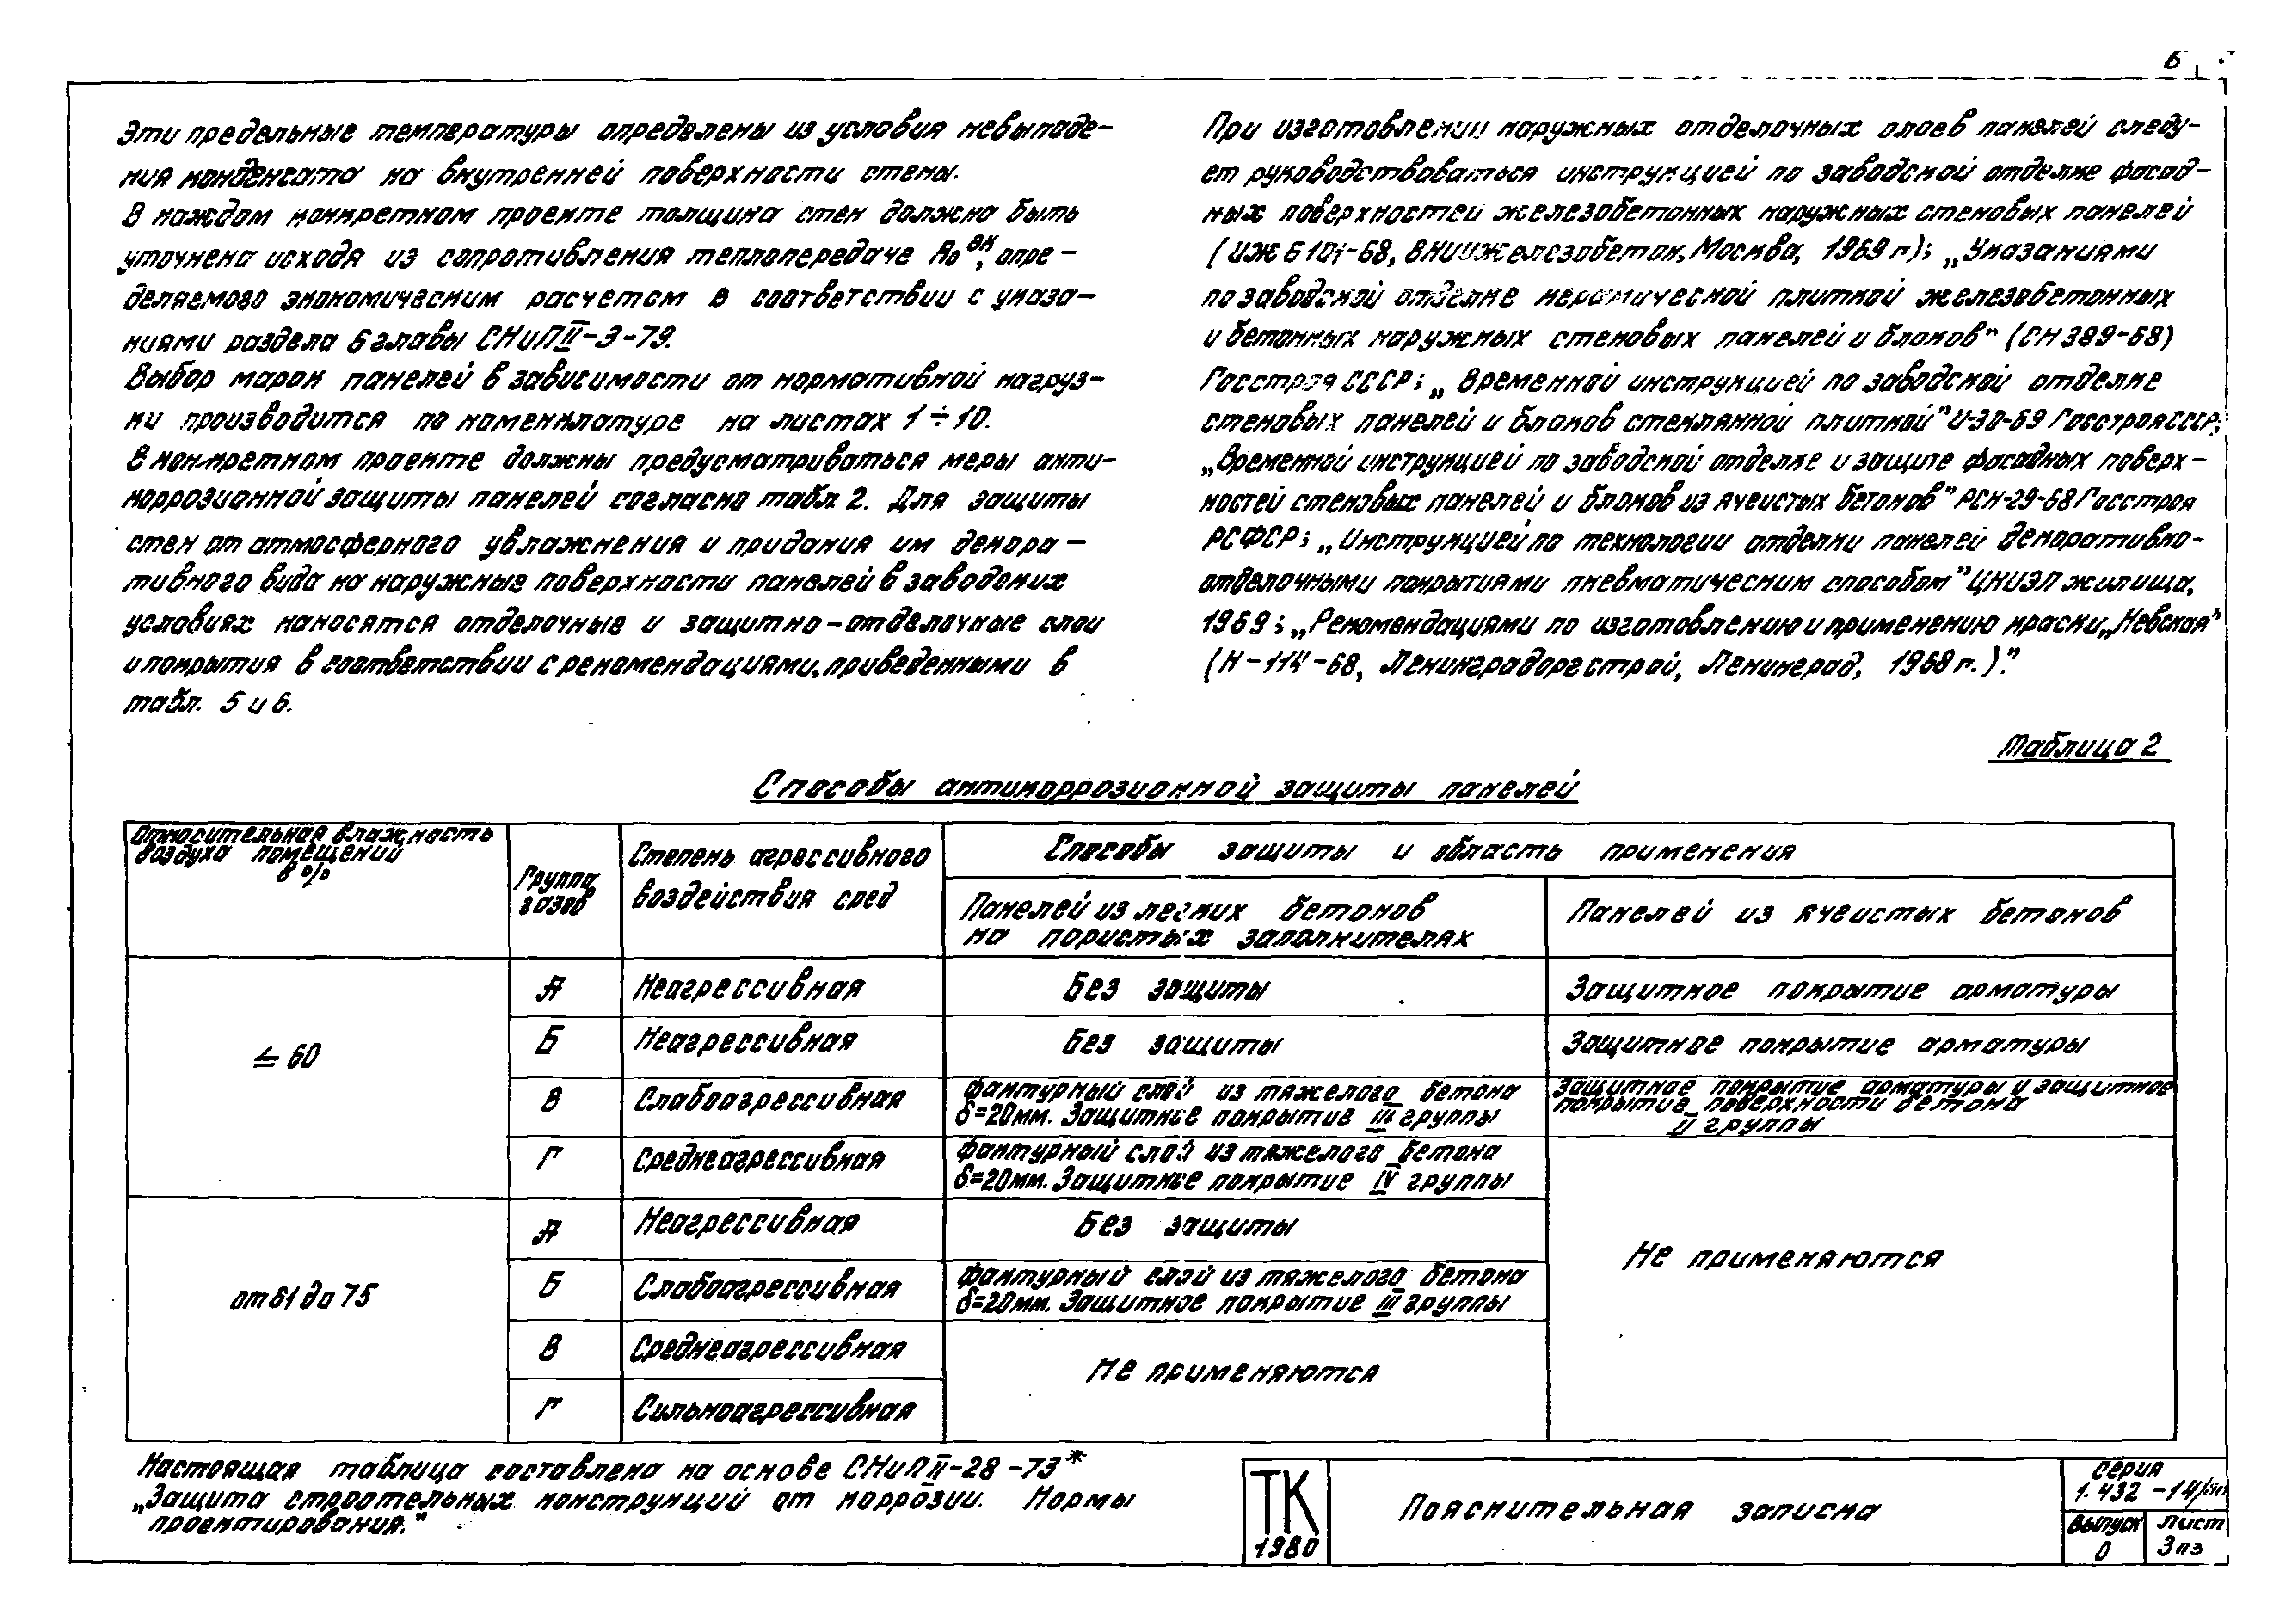 6
Эти предельные температуры определены из условия невыпаде-
ния конденсата на внутренней поверхности стены.
В каждом конкретном проекте толщина стен должна быть
уточнена исходя из сопротивления теплопередаче R₀ᵉᵏ, опре-
деляемого экономическим расчетом в соответствии с указа-
ниями раздела 6 главы СНиП II-3-79.
Выбор марок панелей в зависимости от нормативной нагруз-
ки производится по номенклатуре на листах 1÷10.
В конкретном проекте должны предусматриваться меры анти-
коррозионной защиты панелей согласно табл. 2. Для защиты
стен от атмосферного увлажнения и придания им декора-
тивного вида на наружные поверхности панелей в заводских
условиях наносятся отделочные и защитно-отделочные слои
и покрытия в соответствии с рекомендациями, приведенными в
табл. 5 и 6.
При изготовлении наружных отделочных слоев панелей следу-
ет руководствоваться инструкцией по заводской отделке фасад-
ных поверхностей железобетонных наружных стеновых панелей
(ИЖБ 101-68, ВНИИЖелезобетон, Москва, 1969 г); „Указаниями
по заводской отделке керамической плиткой железобетонных
и бетонных наружных стеновых панелей и блоков" (СН 389-68)
Госстроя СССР; „Временной инструкцией по заводской отделке
стеновых панелей и блоков стеклянной плиткой" И-30-69 Госстроя СССР;
„Временной инструкцией по заводской отделке и защите фасадных поверх-
ностей стеновых панелей и блоков из ячеистых бетонов" РСН-29-68 Госстроя
РСФСР; „Инструкцией по технологии отделки панелей декоративно-
отделочными покрытиями пневматическим способом" ЦНИЭП жилища,
1969; „Рекомендациями по изготовлению и применению краски „Невская"
(Н-114-68, Ленинградоргстрой, Ленинград, 1968 г.)."
Таблица 2
Способы антикоррозионной защиты панелей
Относительная влажность
воздуха помещений
в %
Группа
газов
Степень агрессивного
воздействия сред
Способы защиты и область применения
Панелей из легких бетонов
на пористых заполнителях
Панелей из ячеистых бетонов
≤ 60
А Неагрессивная Без защиты Защитное покрытие арматуры
Б Неагрессивная Без защиты Защитное покрытие арматуры
В Слабоагрессивная
фактурный слой из тяжелого бетона
δ=20мм. Защитное покрытие III группы
Защитное покрытие арматуры и защитное
покрытие поверхности бетона
II группы
Г Среднеагрессивная
фактурный слой из тяжелого бетона
δ=20мм. Защитное покрытие IV группы
Не применяются
от 61 до 75
А Неагрессивная Без защиты
Б Слабоагрессивная
фактурный слой из тяжелого бетона
δ=20мм. Защитное покрытие III группы
В Среднеагрессивная
Не применяются
Г Сильноагрессивная
Настоящая таблица составлена на основе СНиП II-28-73*
„Защита строительных конструкций от коррозии. Нормы
проектирования."
ТК
1980
Пояснительная записка
Серия
1.432-14/80
Выпуск
0
Лист
3пз